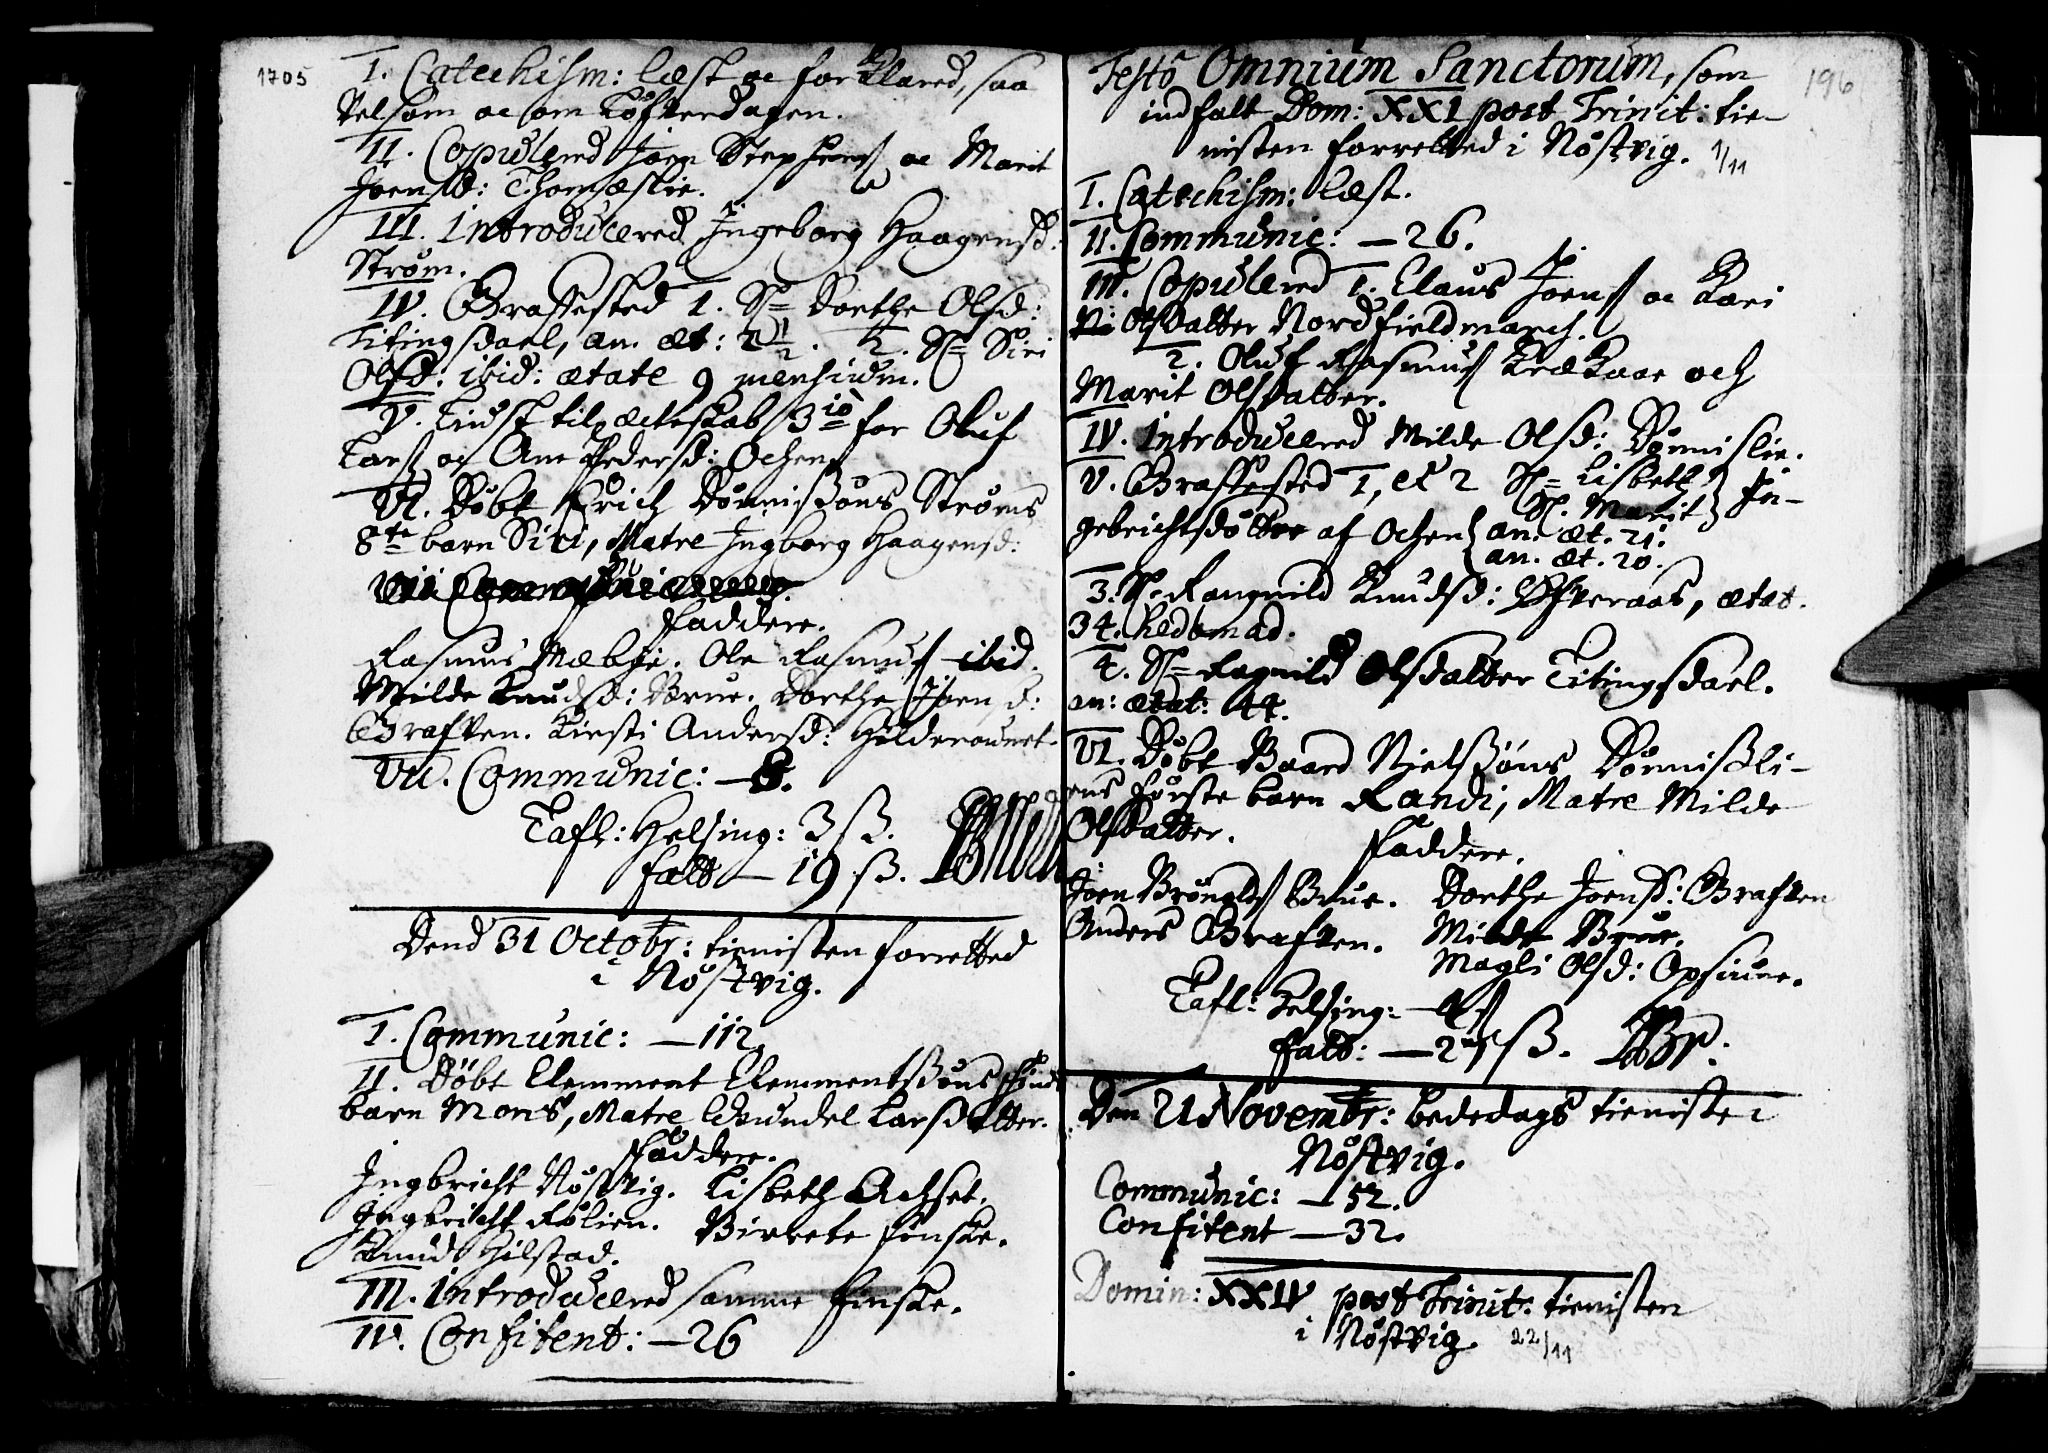 1705
I. Catechism: læst oc forklared, saa
velsom oc om Løfverdagen.
II. Copulered Joen Stephens oc Marit
Joensd: Thomæslie.
III. Introducered Ingeborg Haagensd:
Strøm.
IV. Græffested 1. S= Dorthe Olsd:
Titingsdael, an. æt: 2 1/2. 2. S= Siri
Olsd: ibid: ætate 9 mensium.
V. Liust til ecteskab 3io for Oluf
Lars oc Ane Pedersd: Ochen
VI. Døbt Erich Dønnisøns Strøms
8te barn Siri, Matre Ingborg Haagensd:
Faddere.
Rasmus Mæbøe. Ole Rasmus ibid.
Milde Knudsd: Brue. Dorthe Joensd:
Graften. Kirsti Andersd:
VII. Communic: — 8.
Tafl: Helsing: 3 ß.
fatt — 19 ß.
Dend 31 Octobr: tienisten forretted
i Nøstvig.
I. Communic: — 112.
II. Døbt Clemment Clemmentsøns
barn Mons, Matre Larsdatter.
Faddere.
Ingbricht Nøstvig. Lisbeth Achset.
Ingbricht Rølien. Birrete Finske.
Knud Hilstad.
III. Introducered samme Finske.
IV. Confitent: — 26
196
Festo Omnium Sanctorum, som
indfalt Dom: XXI post Trinit: tie-
nisten forretted i Nøstvig. 1/11
I. Catechism: læst.
II. Communic: — 26.
III. Copulered 1. Claus Joens oc Kari
Olsdatter Nordfieldmarch.
2. Oluf Rasmus och
Marit Olsdatter.
IV. Introducered Milde Olsd: Dønnislie.
V. Græffested 1, et 2 S= Lisbeth
S. Marit } In-
gebrichtsdøttre af Ochen { an. æt. 21.
an. æt. 20.
3. S. Rangnild Knudsd: ætat.
34. hebdomad.
4. S= Ragnild Olsdatter Titingsdael.
an: ætat: 44.
VI. Døbt Baard Nielsøns Dønnisli-
ens første barn Randi, Matre Milde
Olsdatter.
Faddere.
Joen Brue. Dorthe Joensd: Graften
Anders Graften. Milde Brue.
Magli Olsd: Opsiuue.
Tafl: Helsing: — 4 ß
Fatt: — ß.
Den 21 Novembr: bededags tieniste i
Nøstvig.
Communic: — 52.
Confitent — 32.
Domin: XXIV post Trinit: tienisten
i Nøstvig. 22/11